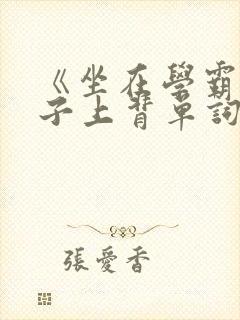 《坐在學霸
子上背單詞
張愛香